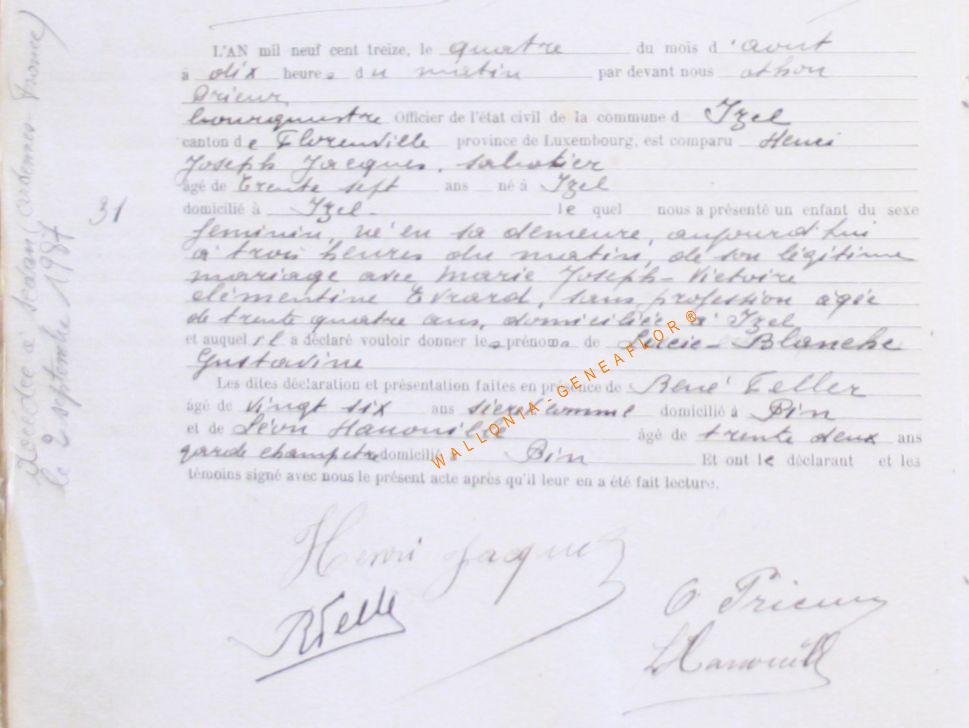 L'AN mil neuf cent treize, le quatre du mois d'aout
à dix heures du matin par devant nous othon
Prieur
bourgmestre Officier de l'état civil de la commune d Izel
canton de Florenville province de Luxembourg, est comparu Henri
Joseph Jacques, sabotier
âgé de trente sept ans né à Izel
domicilié à Izel. le quel nous a présenté un enfant du sexe
féminin, né en sa demeure, aujourd'hui
à trois heures du matin, de son légitime
mariage avec Marie Joseph-Victoire
clémentine Evrard, sans profession âgée
de trente quatre ans, domiciliée à Izel
et auquel il a déclaré vouloir donner les prénoms de Lucie-Blanche
Gustavine
Les dites déclaration et présentation faites en présence de René Feller
âgé de vingt six ans domicilié à Pin
et de Léon Hanouille âgé de trente deux ans
garde champetre domicilié à Pin Et ont le déclarant et les
témoins signé avec nous le présent acte après qu'il leur en a été fait lecture.
31
Décédée à Sedan (Ardennes-France)
le 2 septembre 1987
WALLONIA-GENEAFLOR®
Henri Jacques
RFelle
O Prieur
LHanouille